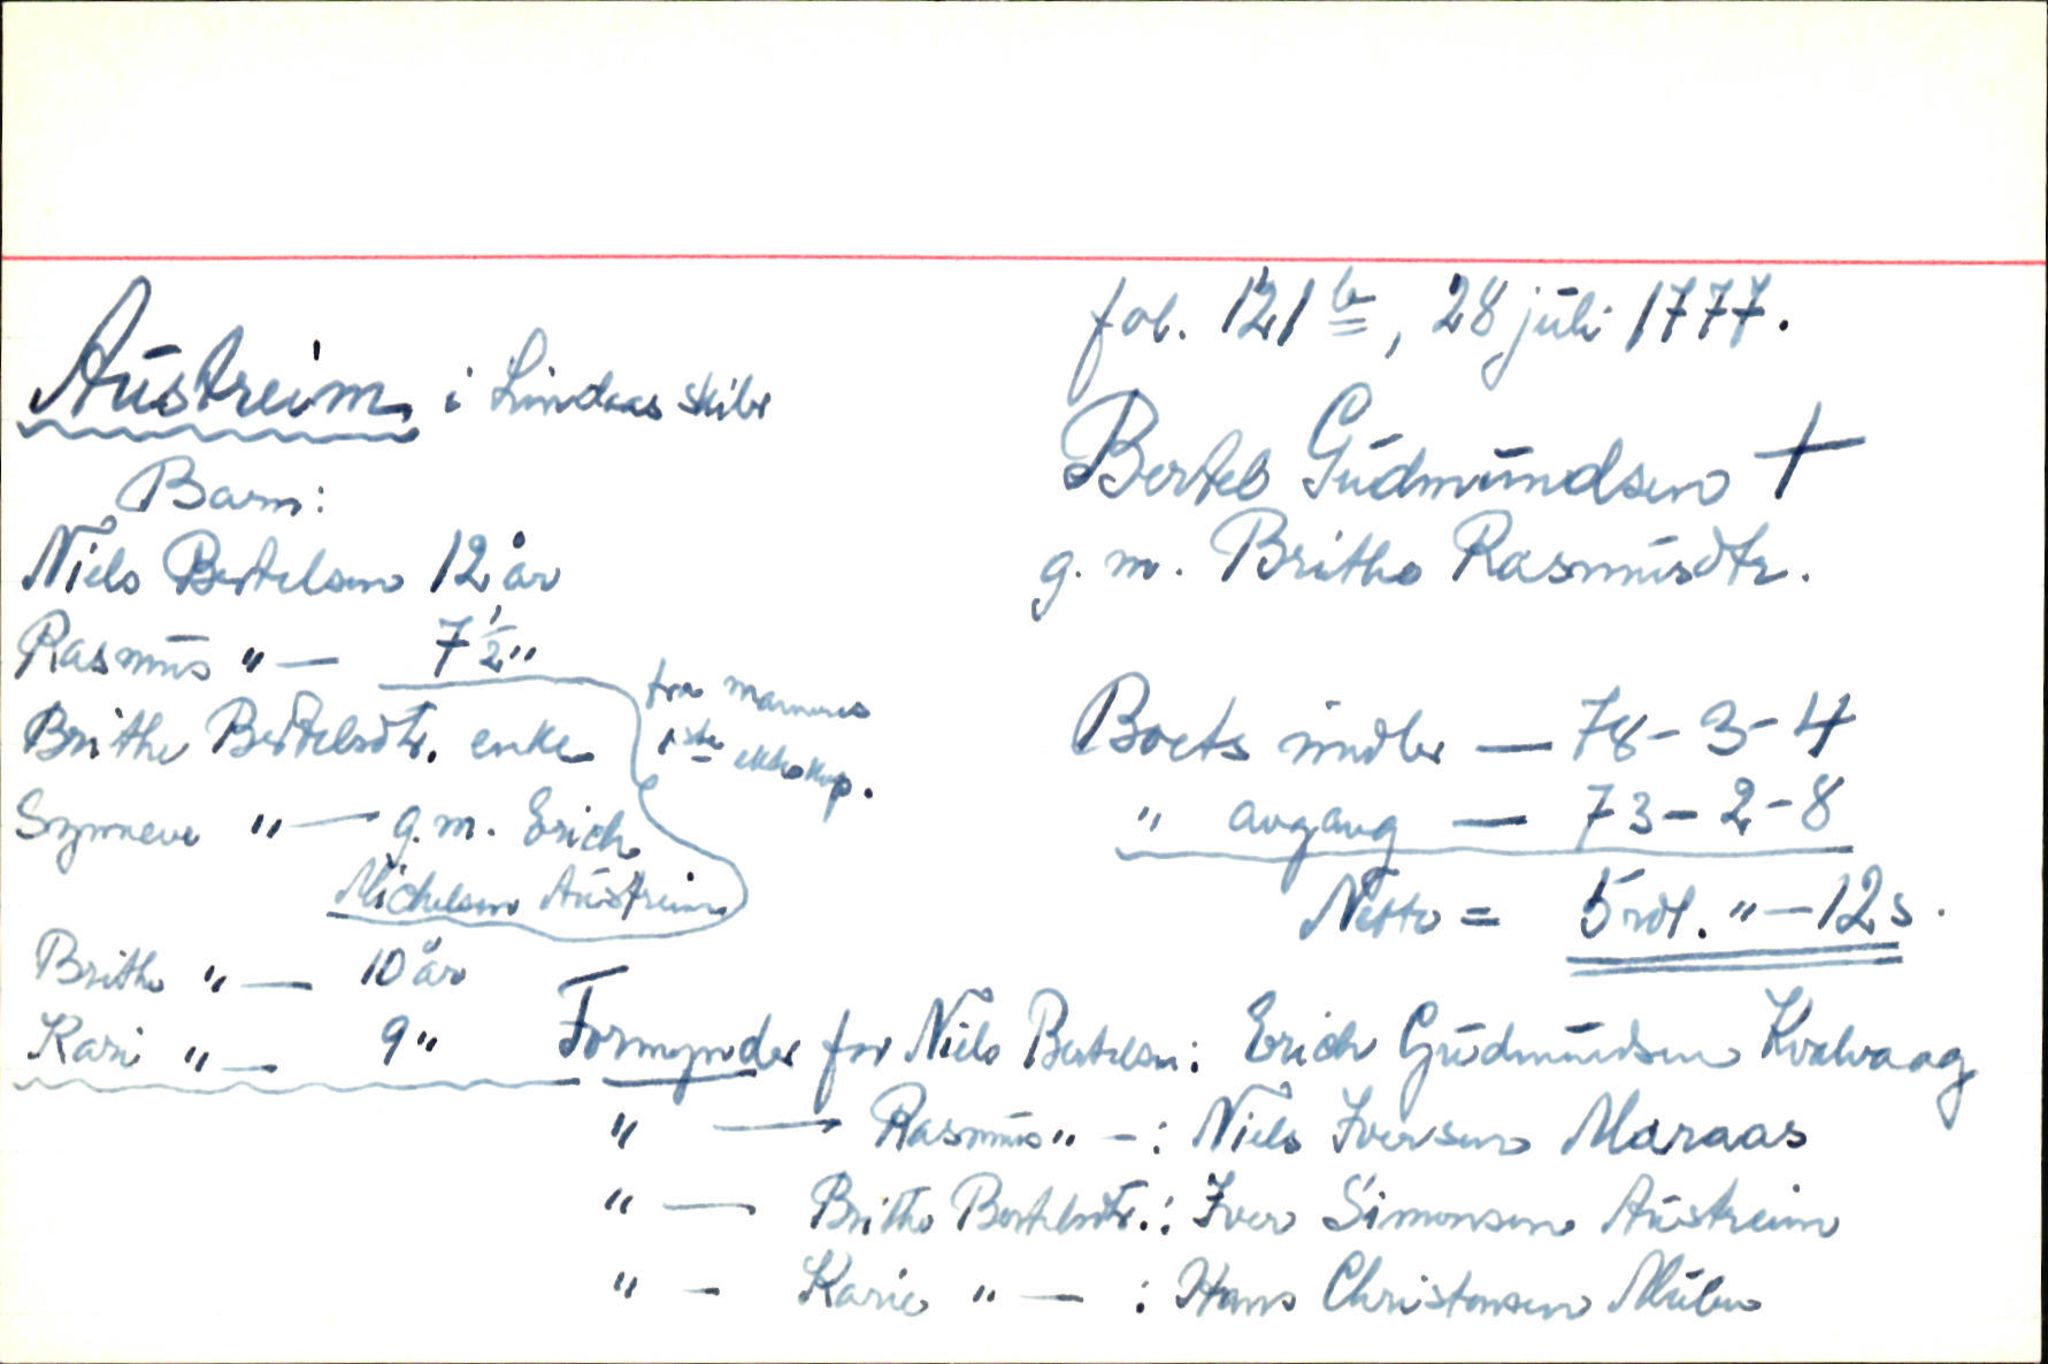 fol. 121 b, 28 juli 1777.
Austreim i Lindaas skibr
Bertel Gudmundsen +
g. m. Brithe Rasmusdtr.
Barn:
Niels Bertelsen 12 år
Rasmus " — 7 1/2 "
Brithe Bertelsdtr. enke
fra mannens
1ste ekteskap.
Synneve " — g. m. Erich
Michelsen Austreim
Brithe " — 10 år
Kari " — 9 "
Boets midler — 78 - 3 - 4
" avgang — 73 - 2 - 8
Netto = 5 rdl. " — 12 s.
Formynder for Niels Bertelsn: Erich Gudmundsen Kvalvaag
" — Rasmus " — : Niels Iversen Maraas
" — Brithe Bertelsdtr.: Iver Simonsen Austreim
" — Karie " — : Hans Christensen